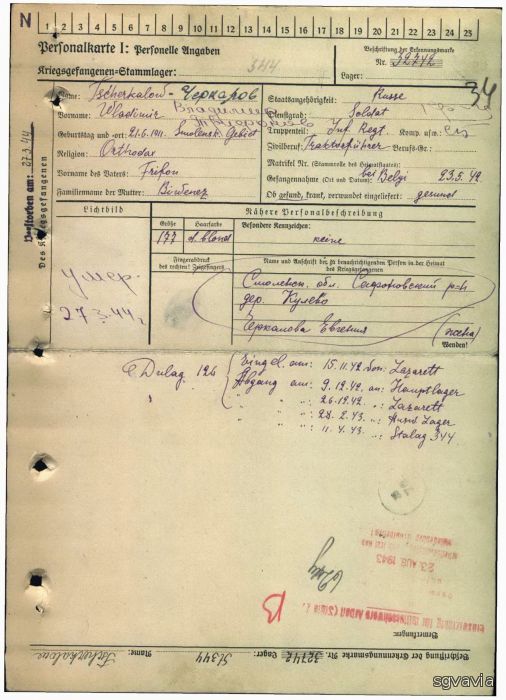 N 1 2 3 4 5 6 7 8 9 10 11 12 13 14 15 16 17 18 19 20 21 22 23 24 25
Personalkarte I: Personelle Angaben
Kriegsgefangenen-Stammlager: 344
Beschriftung der Erkennungsmarke
Nr. 32742
Lager:
34
Name: Tscherkalow - Черкаров
Vorname: Wladimir Владимир
Geburtstag und -ort: 21.6.1911. Smolensk. Gebiet
Religion: Orthodox
Vorname des Vaters: Trifon
Familienname der Mutter:
Staatsangehörigkeit: Russe
Dienstgrad: Soldat
Truppenteil: Inf. Regt. Komp. usw.:
Zivilberuf: Berufs-Gr.:
Matrikel Nr. (Stammrolle des Heimatstaates):
Gefangennahme (Ort und Datum): bei Belyi 23.5.42
Ob gesund, krank, verwundet eingeliefert: gesund
Verstorben am: 27.3.44
Des Kriegsgefangenen
Lichtbild
умер.
27.3.44 г
Nähere Personalbeschreibung
Größe
Haarfarbe
Besondere Kennzeichen:
177
d. blond
keine
Fingerabdruck
des rechten Zeigefingers
Name und Anschrift der zu benachrichtigenden Person in der Heimat
des Kriegsgefangenen
Смоленск. обл. Сафоновский р-н
дер. Кулево
Черкалова Евгения (жена)
Wenden!
Dulag 126
Eingel. am: 15.11.42 von: Lazarett
Abgang am: 9.12.42 an: Hauptlager
" " 26.12.42 " : Lazarett
" " 28.2.43. " : Lager
" " 11.4.43 " : Stalag 344.
23. AUG. 1943
B
Bemerkungen:
Beschriftung der Erkennungsmarke Nr. 32742 Lager: St 344 Name: Tscherkalow
sgvavia